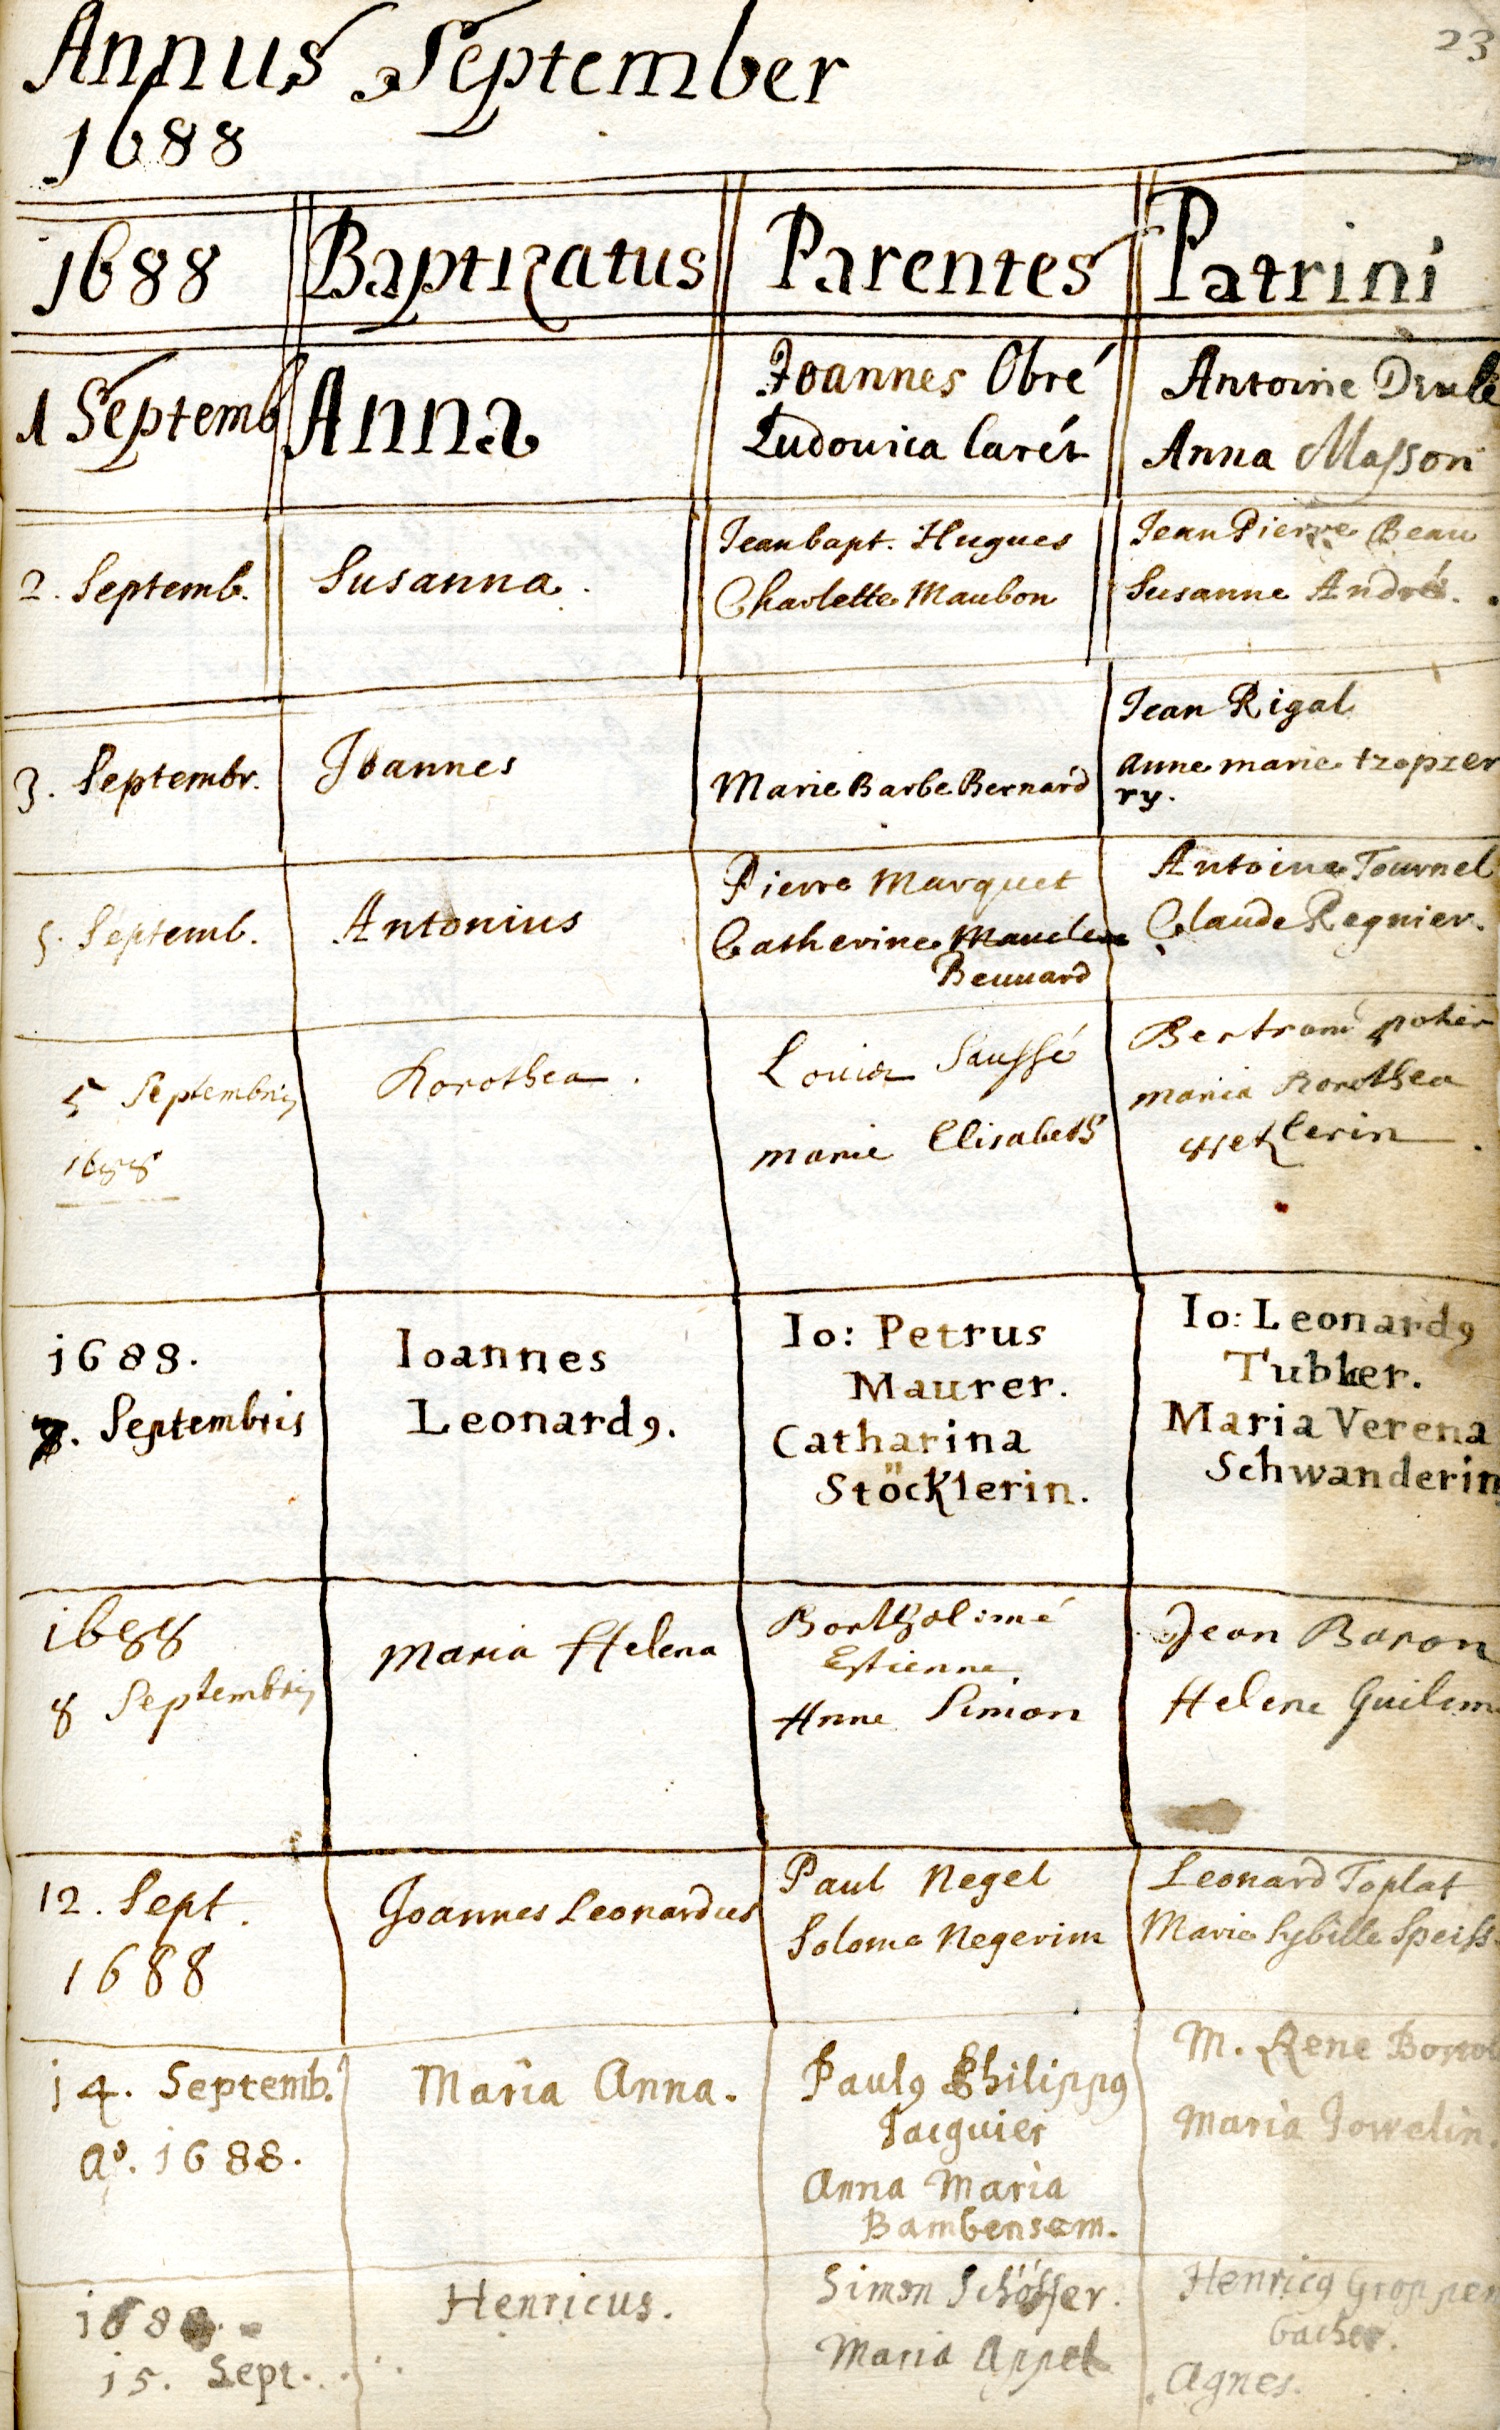 23
Annus September
1688
1688 Baptizatus Parentes Patrini
1 Septemb Anna
Joannes Obré
Ludovica Carét
Antoine
Anna Masson
2. Septemb. Susanna.
Jeanbapt. Hugues
Charlette Maubon
Jean Pierre Beau
Susanne André.
3. Septembr. Joannes
Marie Barbe Bernard
Jean Rigal
anne marie tzopzer
ry.
5. Septemb. Antonius
Pierre Marquet
Catherine
Beuuard
Antoine Tournel
Claude Regnier.
5 Septembris
1688
Dorothea.
Louis Saussé
marie Elisabeth
Bertram
maria Dorothea
1688.
7. Septembris
Ioannes
Leonardꝯ.
Io: Petrus
Maurer.
Catharina
Stöcklerin.
Io: Leonardꝯ
Tubler.
Maria Verena
Schwanderin
1688
8 Septembris
Maria Helena
Bartholimé
Estienne.
Anne Simon
Jean Baron
Helene Guilem
12. Sept.
1688
Joannes Leonardus
Paul Negel
Solome Negerim
Leonard Toplat
Marie Sybille Speiss
14. Septemb.
Aº. 1688.
Maria Anna.
Paulꝯ Philippꝯ
Jacquier
Anna Maria
Bambensem.
M. Rene
Maria Jowelin.
1688.
15. Sept.
Henricus.
Simon Schösser.
Maria Appel
Henricꝯ Groppen
bacher.
Agnes.